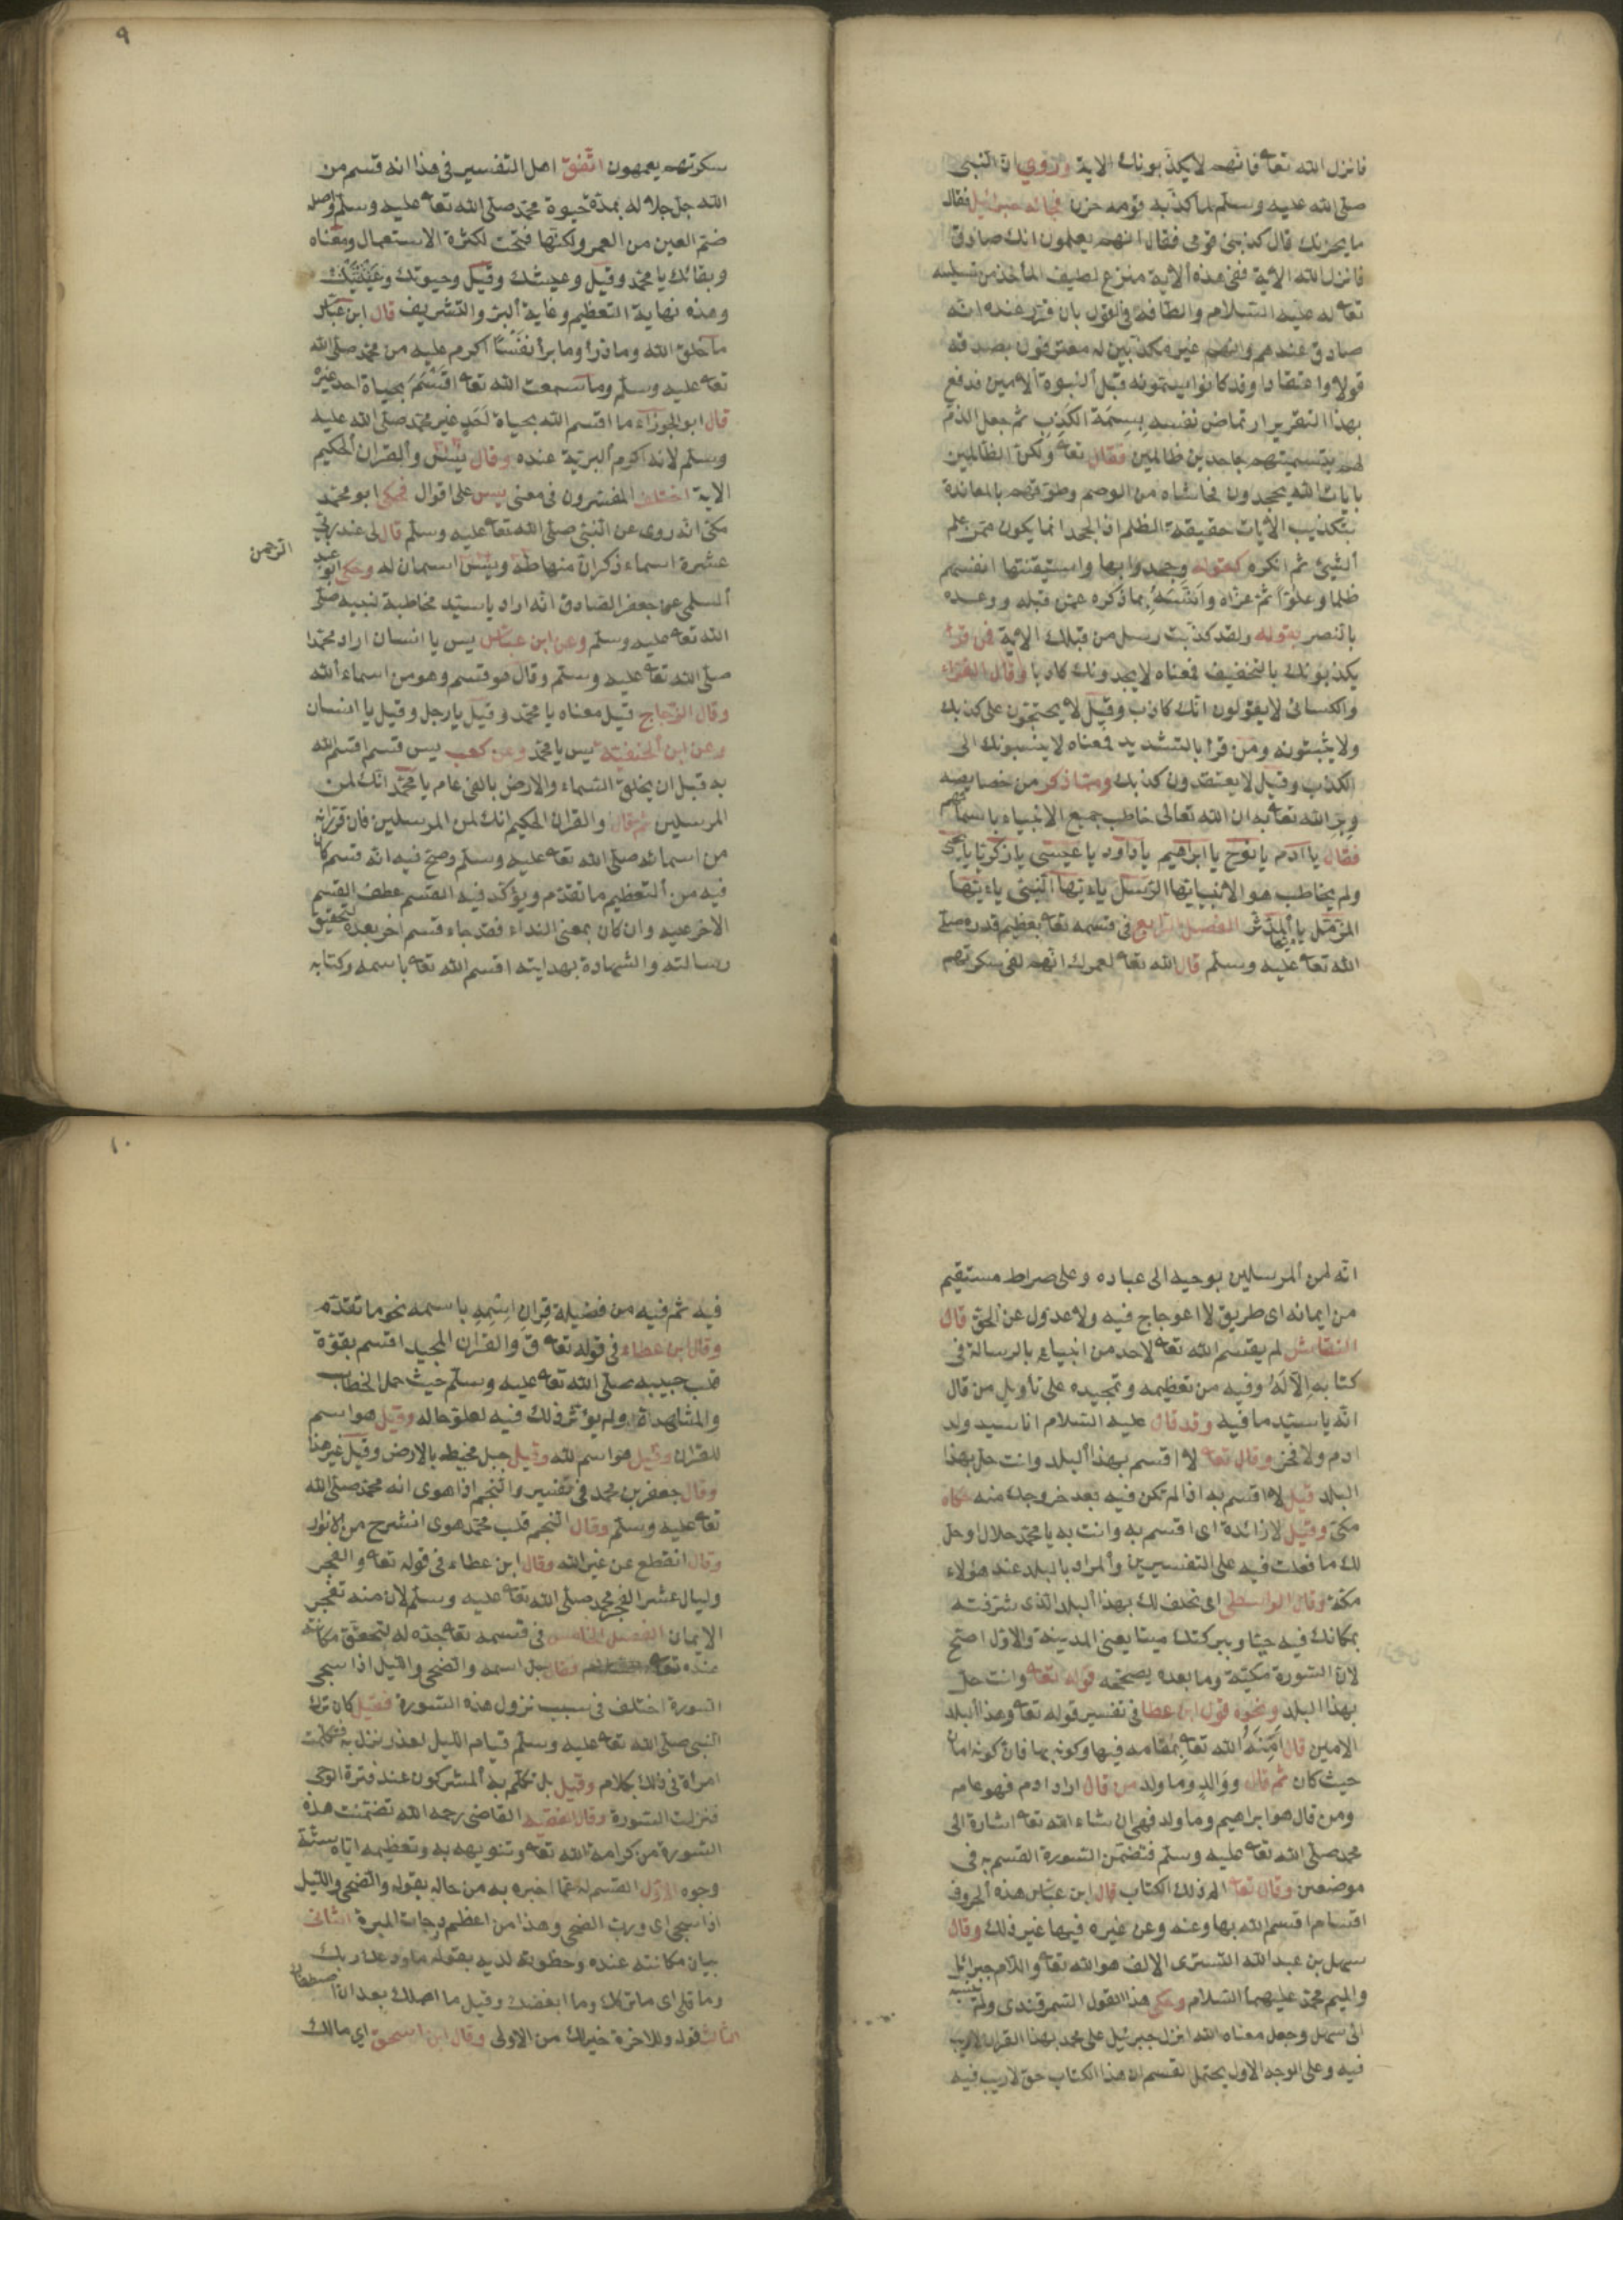 فانزل الله تعا فانهم لا يكذبونك الاية وروي ان النبي
صلى الله عليه وسلم لما كذبه قومه حزن فجاءه جبرئيل فقال
ما يحزنك قال كذبني قومي فقال انهم يعلمون انك صادق
فانزل الله الاية ففي هذه الاية منزع لطيف المأخذ من تسليته
تعا له عليه السلام والطافه في القول بان قرر عنده انه
صادق عندهم وانهم غير مكذبين له معترفون بصدقه
قولا واعتقادا وقد كانوا يسمونه قبل النبوة الامين فدفع
بهذا التقرير ارتماض نفسه بسمة الكذب ثم جعل الذم
لهم بتسميتهم جاحدين ظالمين فقال تعا ولكن الظالمين
بايات الله يجحدون فحاشاه من الوصم وطوقهم بالمعاندة
بتكذيب الايات حقيقة الظلم اذ الجحد انما يكون ممن علم
الشيئ ثم انكره كقوله وجحدوا بها واستيقنتها انفسهم
ظلما وعلوا ثم عزاه وانسه بما ذكره عمن قبله ووعده
بالنصر بقوله ولقد كذبت رسل من قبلك الاية فمن قرا
يكذبونك بالتخفيف فمعناه لا يجدونك كاذبا وقال الفراء
والكسائي لا يقولون انك كاذب وقيل لا يحتجون على كذبك
ولا يثبتونه ومن قرا بالتشديد فمعناه لا ينسبونك الى
الكذب وقيل لا يعتقدون كذبك ومما ذكر من خصايصه
وبر الله تعا به ان الله تعالى خاطب جميع الانبياء باسمائهم
فقال يا ادم يا نوح يا ابراهيم يا داود يا عيسى يا زكريا يا يحيى
ولم يخاطب هو الا يا ايها الرسل يا ايها النبي يا ايها
المزمل يا ايها المدثر الفصل الرابع في قسمه تعا بعظيم قدره صلى
الله تعا عليه وسلم قال الله تعا لعمرك انهم لفي سكرتهم
٩
سكرتهم يعمهون اتفق اهل التفسير في هذا انه قسم من
الله جل جلاله بمدة حيوة محمد صلى الله تعا عليه وسلم واصله
ضم العين من العمر ولكنها فتحت لكثرة الاستعمال ومعناه
وبقائك يا محمد وقيل وعيشك وقيل وحيوتك
وهذه نهاية التعظيم وغاية البر والتشريف قال ابن عباس
ما خلق الله وما ذرأ وما برأ نفسا اكرم عليه من محمد صلى الله
تعا عليه وسلم وما سمعت الله تعا اقسم بحياة احد غيره
قال ابو الجوزاء ما اقسم الله بحياة احد غير محمد صلى الله عليه
وسلم لانه اكرم البرية عنده وقال يس والقران الحكيم
الاية اختلف المفسرون في معنى يس على اقوال فحكى ابو محمد
مكي انه روى عن النبي صلى الله تعا عليه وسلم قال لي عند ربي
عشرة اسماء ذكر ان منها طه ويس اسمان له وحكى ابو عبد
الرحمن
السلمي عن جعفر الصادق انه اراد يا سيد مخاطبة لنبيه صلى
الله تعا عليه وسلم وعن ابن عباس يس يا انسان اراد محمدا
صلى الله تعا عليه وسلم وقال هو قسم وهو من اسماء الله
وقال الزجاج قيل معناه يا محمد وقيل يا رجل وقيل يا انسان
وعن ابن الحنفية يس يا محمد وعن كعب يس قسم اقسم الله
به قبل ان يخلق السماء والارض بالفي عام يا محمد انك لمن
المرسلين ثم قال والقران الحكيم انك لمن المرسلين فان قرر انه
من اسمائه صلى الله تعا عليه وسلم وصح فيه انه قسم كان
فيه من التعظيم ما تقدم ويؤكد فيه القسم عطف القسم
الاخر عليه وان كان بمعنى النداء فقد جاء قسم اخر بعده لتحقيق
رسالته والشهادة بهدايته اقسم الله تعا باسمه وكتابه
انه لمن المرسلين بوحيه الى عباده وعلى صراط مستقيم
من ايمانه اى طريق لا اعوجاج فيه ولا عدول عن الحق قال
النقاش لم يقسم الله تعا لاحد من انبيائه بالرسالة في
كتابه الا له وفيه من تعظيمه وتمجيده على تأويل من قال
انه يا سيد ما فيه وقد قال عليه السلام انا سيد ولد
ادم ولا فخر وقال تعا لا اقسم بهذا البلد وانت حل بهذا
البلد قيل لا اقسم به اذا لم تكن فيه بعد خروجك منه حكاه
مكي وقيل لا زائدة اى اقسم به وانت به يا محمد حلال او حل
لك ما فعلت فيه على التفسيرين والمراد بالبلد عند هؤلاء
مكة وقال الواسطي اى نحلف لك بهذا البلد الذى شرفته
بمكانك فيه حيا وببركتك ميتا يعني المدينة والاول اصح
لان السورة مكية وما بعده يصححه قوله تعا وانت حل
بهذا البلد ونحوه قول ابن عطا في تفسير قوله تعا وهذا البلد
الامين قال امنه الله تعا بمقامه فيها وكونه بها فان كونه امان
حيث كان ثم قال ووالد وما ولد من قال اراد ادم فهو عام
ومن قال هو ابراهيم وما ولد فهي ان شاء الله تعا اشارة الى
محمد صلى الله تعا عليه وسلم فتضمن السورة القسم به في
موضعين وقال تعا الم ذلك الكتاب قال ابن عباس هذه الحروف
اقسام اقسم الله بها وعنه وعن غيره فيها غير ذلك وقال
سهل بن عبد الله التسترى الالف هو الله تعا واللام جبرائل
والميم محمد عليهما السلام وحكى هذا القول السمرقندى ولم ينسبه
الى سهل وجعل معناه الله انزل جبرئيل على محمد بهذا القران لا ريب
فيه وعلى الوجه الاول يحتمل القسم ان هذا الكتاب حق لا ريب فيه
١٠
فيه ثم فيه من فضيلة قران اسمه باسمه نحو ما تقدم
وقال ابن عطاء في قوله تعا ق والقران المجيد اقسم بقوة
قلب حبيبه صلى الله تعا عليه وسلم حيث حمل الخطاب
والمشاهدة ولم يؤثر ذلك فيه لعلو حاله وقيل هو اسم
للقران وقيل هو اسم لله وقيل جبل محيط بالارض وقيل غير هذا
وقال جعفر بن محمد في تفسير والنجم اذا هوى انه محمد صلى الله
تعا عليه وسلم وقال النجم قلب محمد هوى انشرح من الانوار
وقال انقطع عن غير الله وقال ابن عطاء في قوله تعا والفجر
وليال عشر الفجر محمد صلى الله تعا عليه وسلم لان منه تفجر
الايمان الفصل الخامس في قسمه تعا جده له لتحقق مكانته
عنده تعا فقال جل اسمه والضحى والليل اذا سجى
السورة اختلف في سبب نزول هذه السورة فقيل كان ترك
النبي صلى الله تعا عليه وسلم قيام الليل لعذر نزل به فتكلمت
امراة في ذلك بكلام وقيل بل تكلم به المشركون عند فترة الوحى
فنزلت السورة وقال الفقيه القاضي رحمه الله تضمنت هذه
السورة من كرامة الله تعا وتنويهه به وتعظيمه اياه ستة
وجوه الاول القسم له عما اخبره به من حاله بقوله والضحى والليل
اذا سجى اى ورب الضحى وهذا من اعظم درجات المبرة الثاني
بيان مكانته عنده وحظوته لديه بقوله ما ودعك ربك
وما قلى اى ما تركك وما ابغضك وقيل ما اهملك بعد ان اصطفاك
الثالث قوله وللاخرة خير لك من الاولى وقال ابن اسحق اي مالك